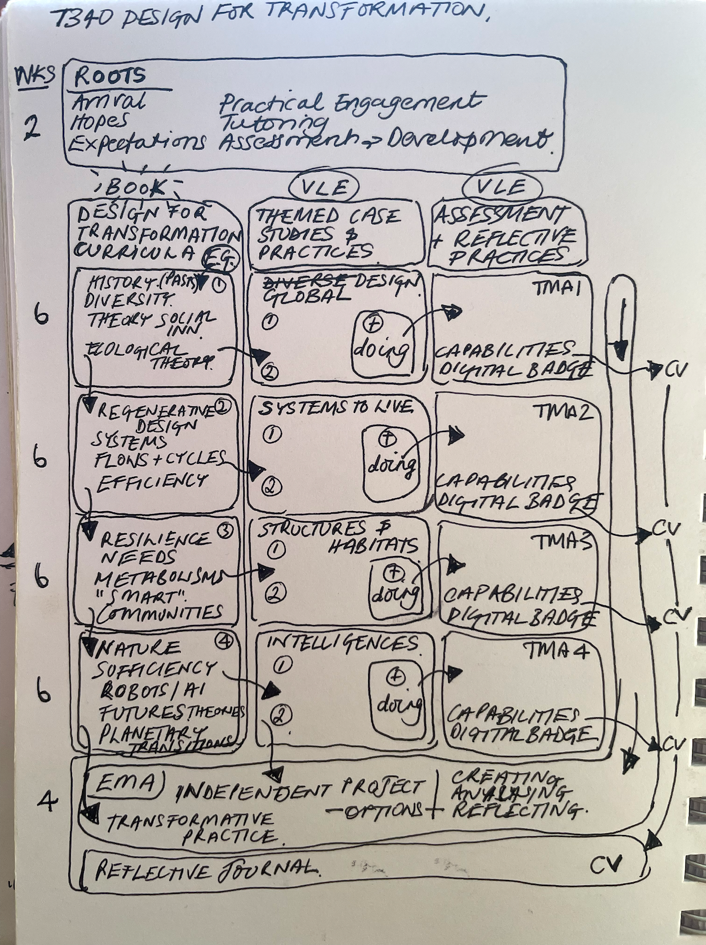 T340 DESIGN FOR TRANSFORMATION.
WKS
ROOTS
2
Arrival Practical Engagement
Hopes Tutoring
Expectations Assessment → Development.
BOOK
DESIGN FOR
TRANSFORMATION
CURRICULA EG.
VLE
THEMED CASE
STUDIES &
PRACTICES
VLE
ASSESSMENT
+ REFLECTIVE
PRACTICES
6
HISTORY (PAST) ①
DIVERSITY.
THEORY SOCIAL
INN.
ECOLOGICAL
THEORY.
DIVERSE DESIGN
GLOBAL
①
②
+
doing
TMA1
CAPABILITIES
DIGITAL BADGE
CV
6
REGENERATIVE ②
DESIGN
SYSTEMS
FLOWS + CYCLES
EFFICIENCY
SYSTEMS TO LIVE
①
②
+
doing
TMA2
CAPABILITIES
DIGITAL BADGE
CV
6
RESILIENCE ③
NEEDS
METABOLISMS
"SMART".
COMMUNITIES
STRUCTURES &
HABITATS
①
②
+
doing
TMA3
CAPABILITIES
DIGITAL BADGE
CV
6
NATURE ④
SOFFICIENCY
ROBOTS/AI
FUTURES THEORIES
PLANETARY
TRANSITIONS
INTELLIGENCES.
①
②
+
doing
TMA4
CAPABILITIES
DIGITAL BADGE
CV
4
EMA
INDEPENDENT PROJECT
—OPTIONS
TRANSFORMATIVE
PRACTICE.
CREATING
REFLECTING.
REFLECTIVE JOURNAL.
CV